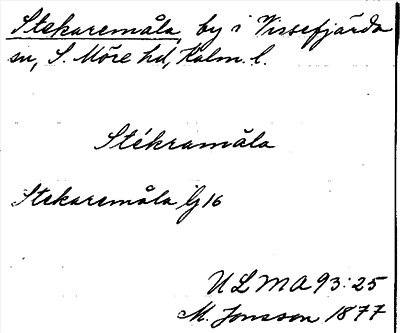 Stekaremåla, by i Vissefjärda
sn, S. Möre hd, Kalm. l.
Stékramåla
Stekaremåla G 16
ULMA 93:25
M. Jonsson 1877